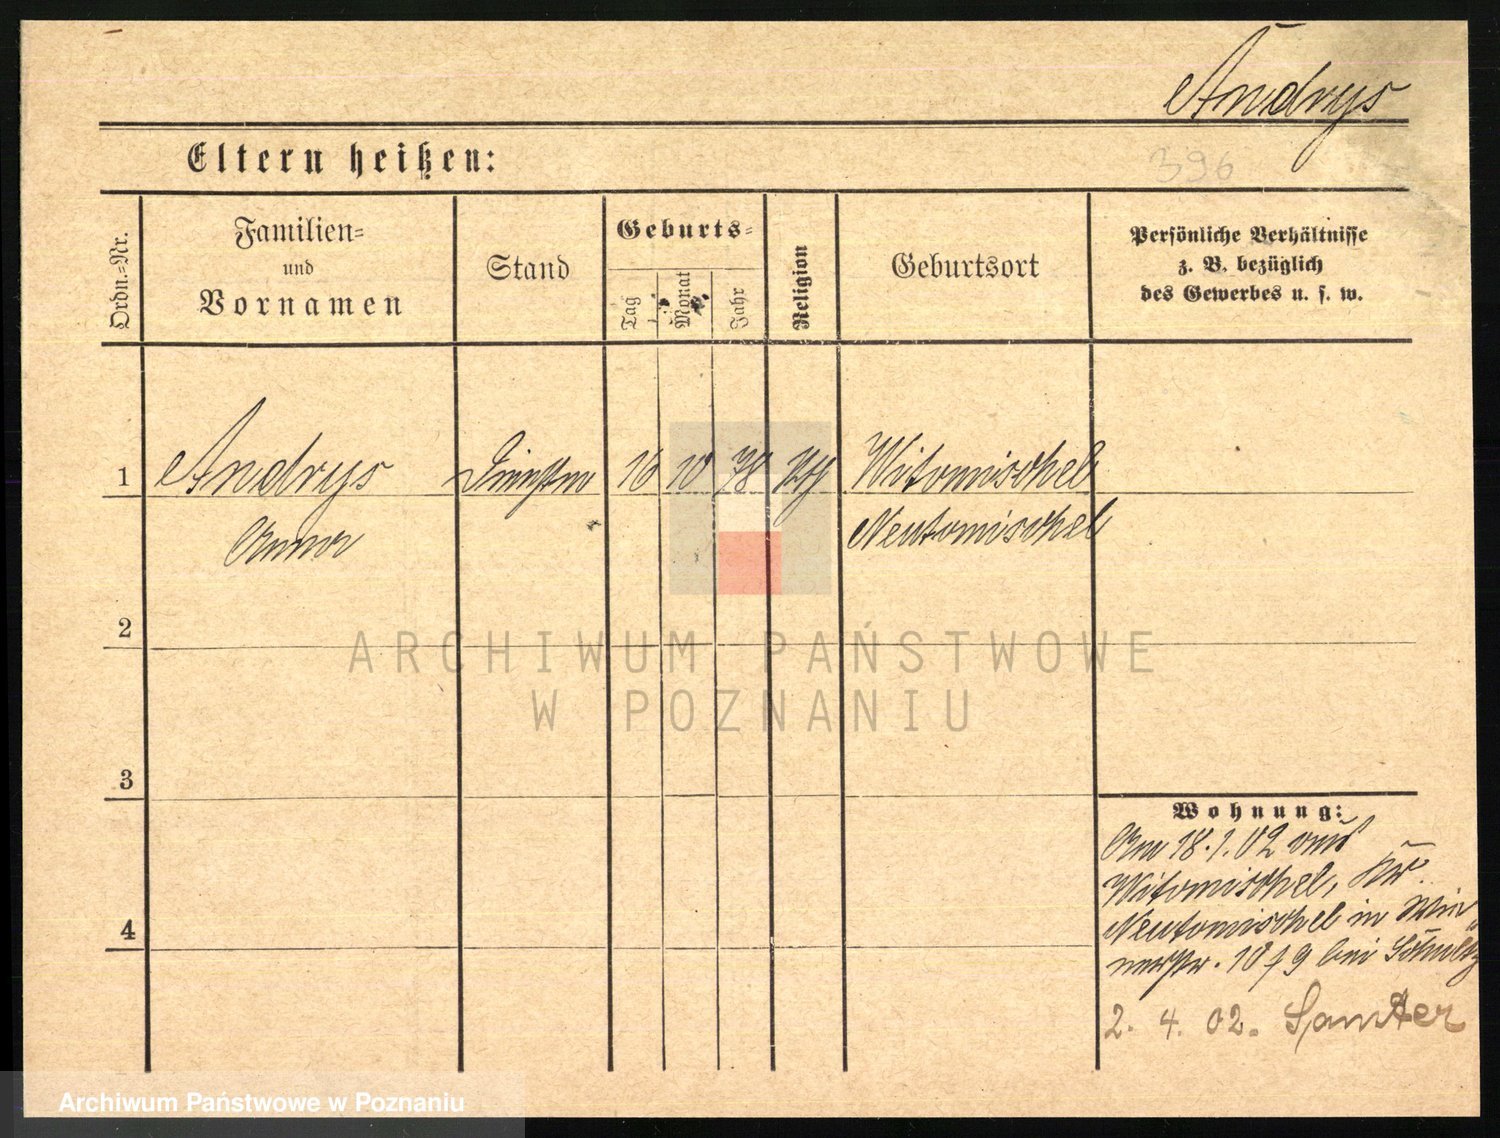 Andrys
Eltern heißen:
396
Ordn.-Nr.
Familien-
und
Vornamen
Stand
Geburts-
Tag
Monat
Jahr
Religion
Geburtsort
Persönliche Verhältnisse
z. B. bezüglich
des Gewerbes u. s. w.
1
Andrys
16 10 78
Witomischel
Anna
Neutomischel
2
ARCHIWUM PAŃSTWOWE
W POZNANIU
3
Wohnung:
Am 18.1.02 aus
Witomischel, Kr.
4
Neutomischel in
bei Schultz
2. 4. 02. Samter
Archiwum Państwowe w Poznaniu